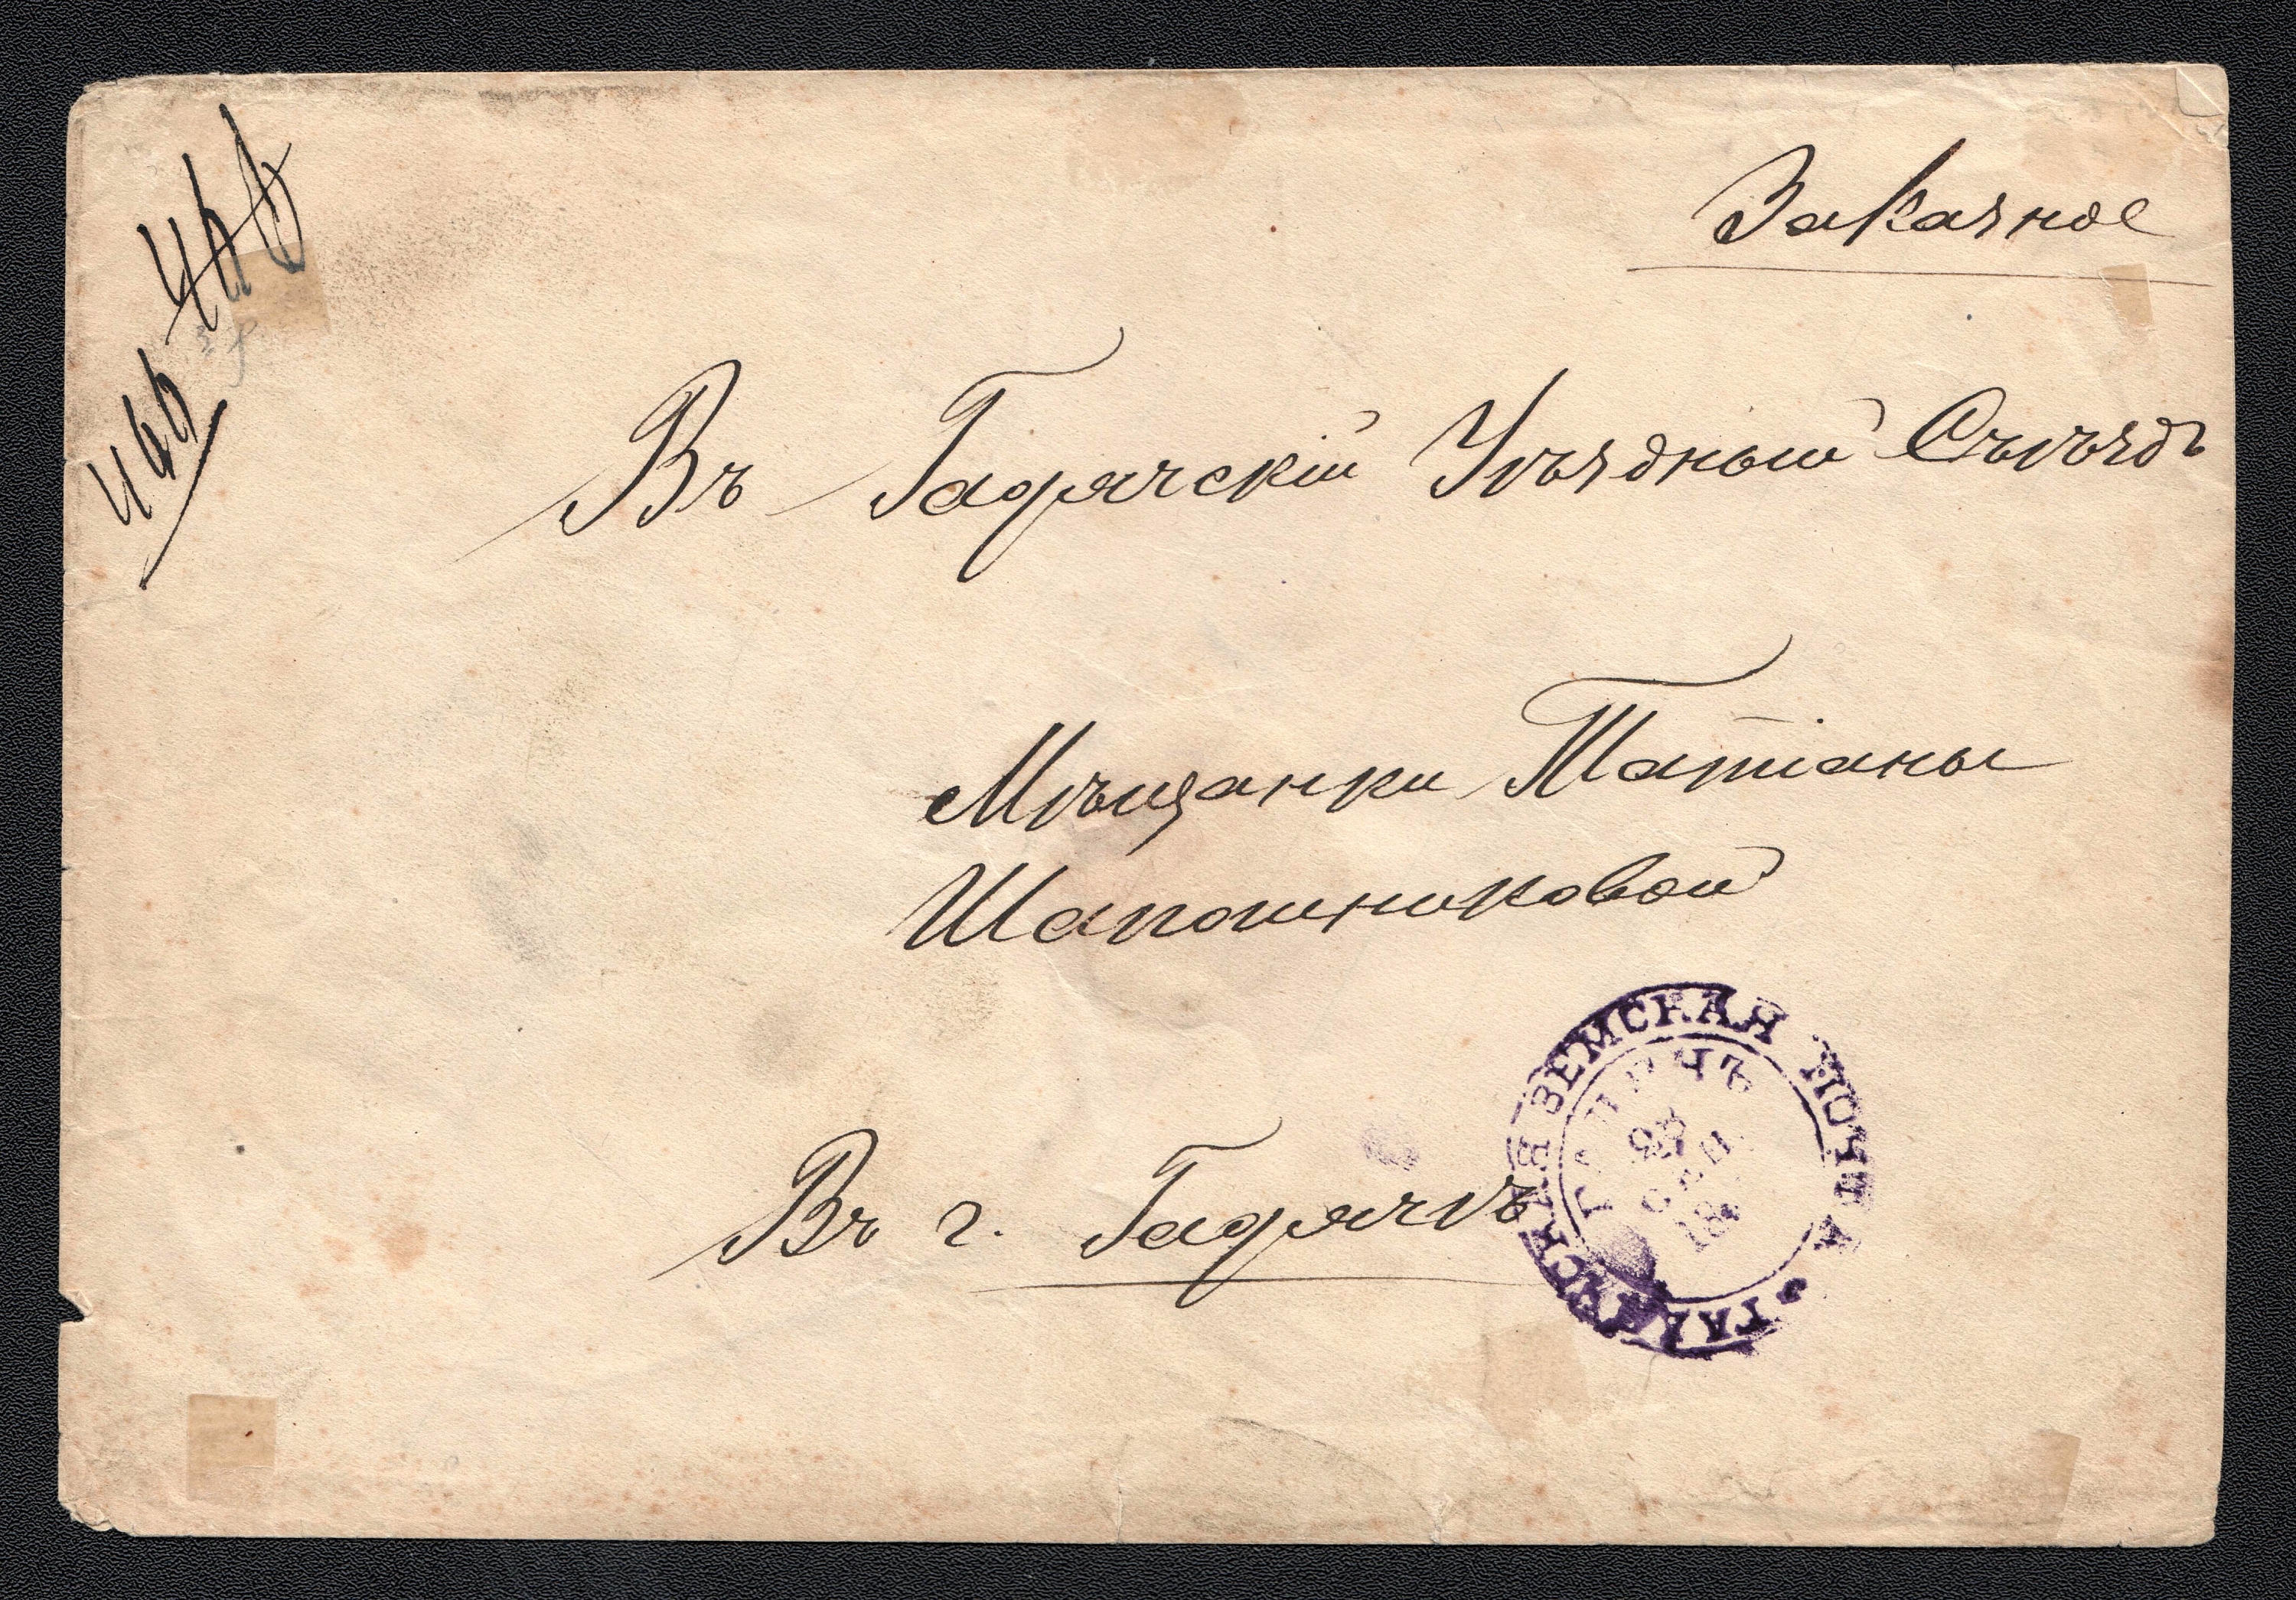 Заказное
446
446
Въ Гадячскій Уѣздный Съѣздъ
Мѣщанки Татіаны
Шапошниковой
Въ г. Гадячѣ
ГАДЯЧСКАЯ ЗЕМСКАЯ ПОЧТА
ГАДЯЧЪ
СЕП